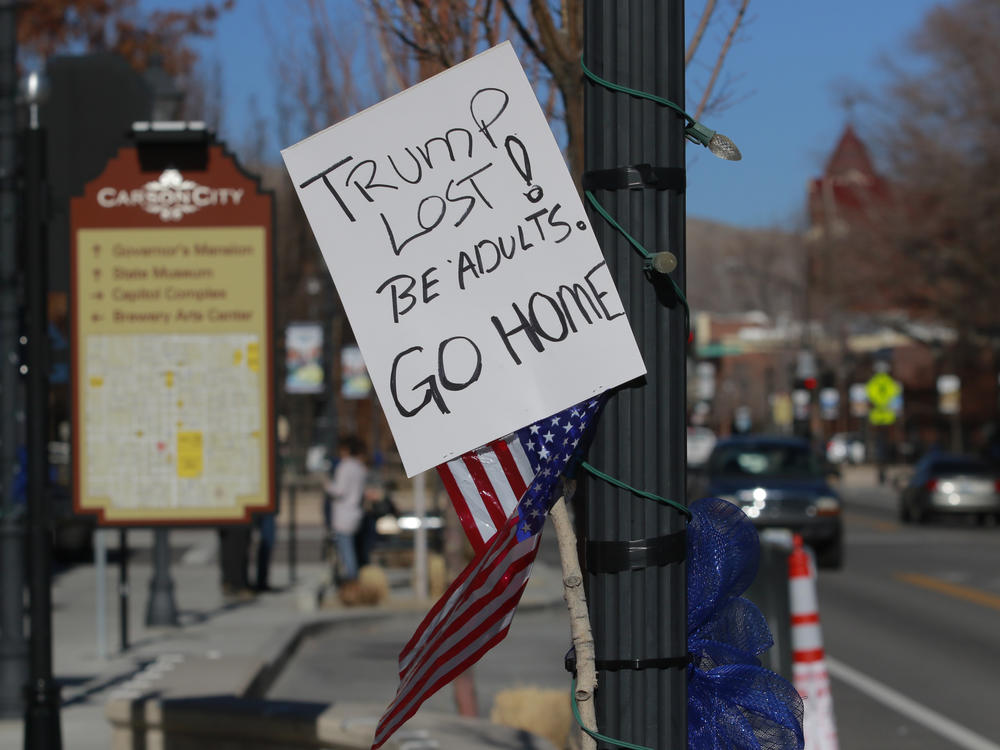 CARSON CITY
Governor's Mansion
State Museum
Capitol Complex
Brewery Arts Center
TRUMP
LOST!
BE ADULTS.
GO HOME